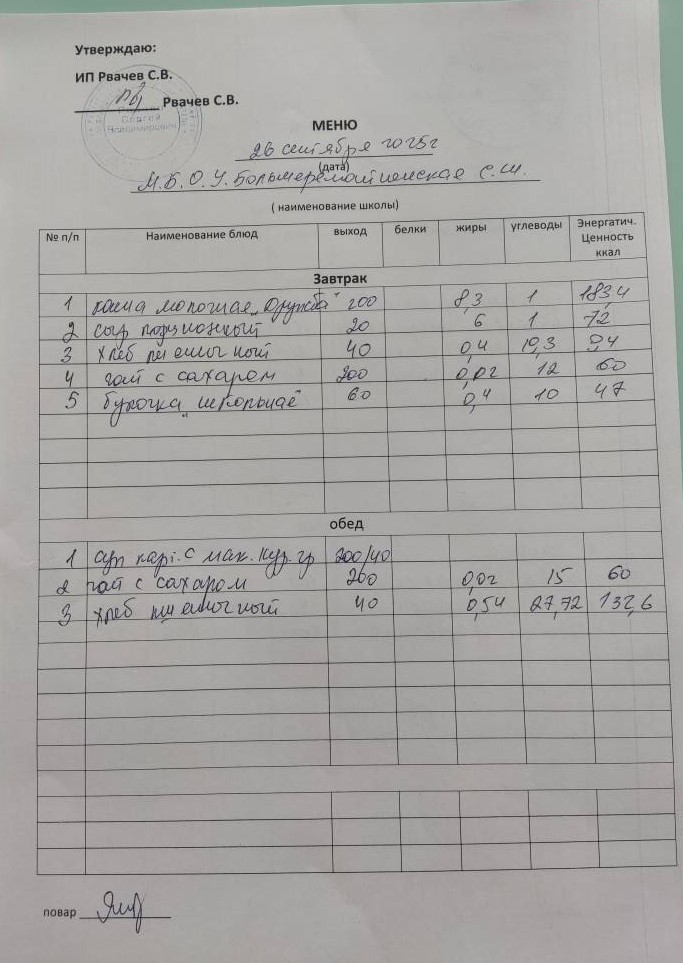 Утверждаю:
ИП Рвачев С.В.
Рвачев С.В.
Сергей
Владимирович
МЕНЮ
26 сентября 2025г
(дата)
М.К.О.У. Большеремонтненская С.Ш.
( наименование школы)
№ п/п Наименование блюд выход белки жиры углеводы Энергатич. Ценность ккал
Завтрак
1 каша молочная „Дружба" 200 8,3 1 183,4
2 сыр порционный 20 6 1 72
3 хлеб пшеничный 40 0,4 19,3 94
4 чай с сахаром 200 0,02 12 60
5 булочка „школьная" 60 0,4 10 47
обед
1 суп карт. с мак. кур. гр 200/40
2 чай с сахаром 200 0,02 15 60
3 хлеб пшеничный 40 0,54 27,72 132,6
повар